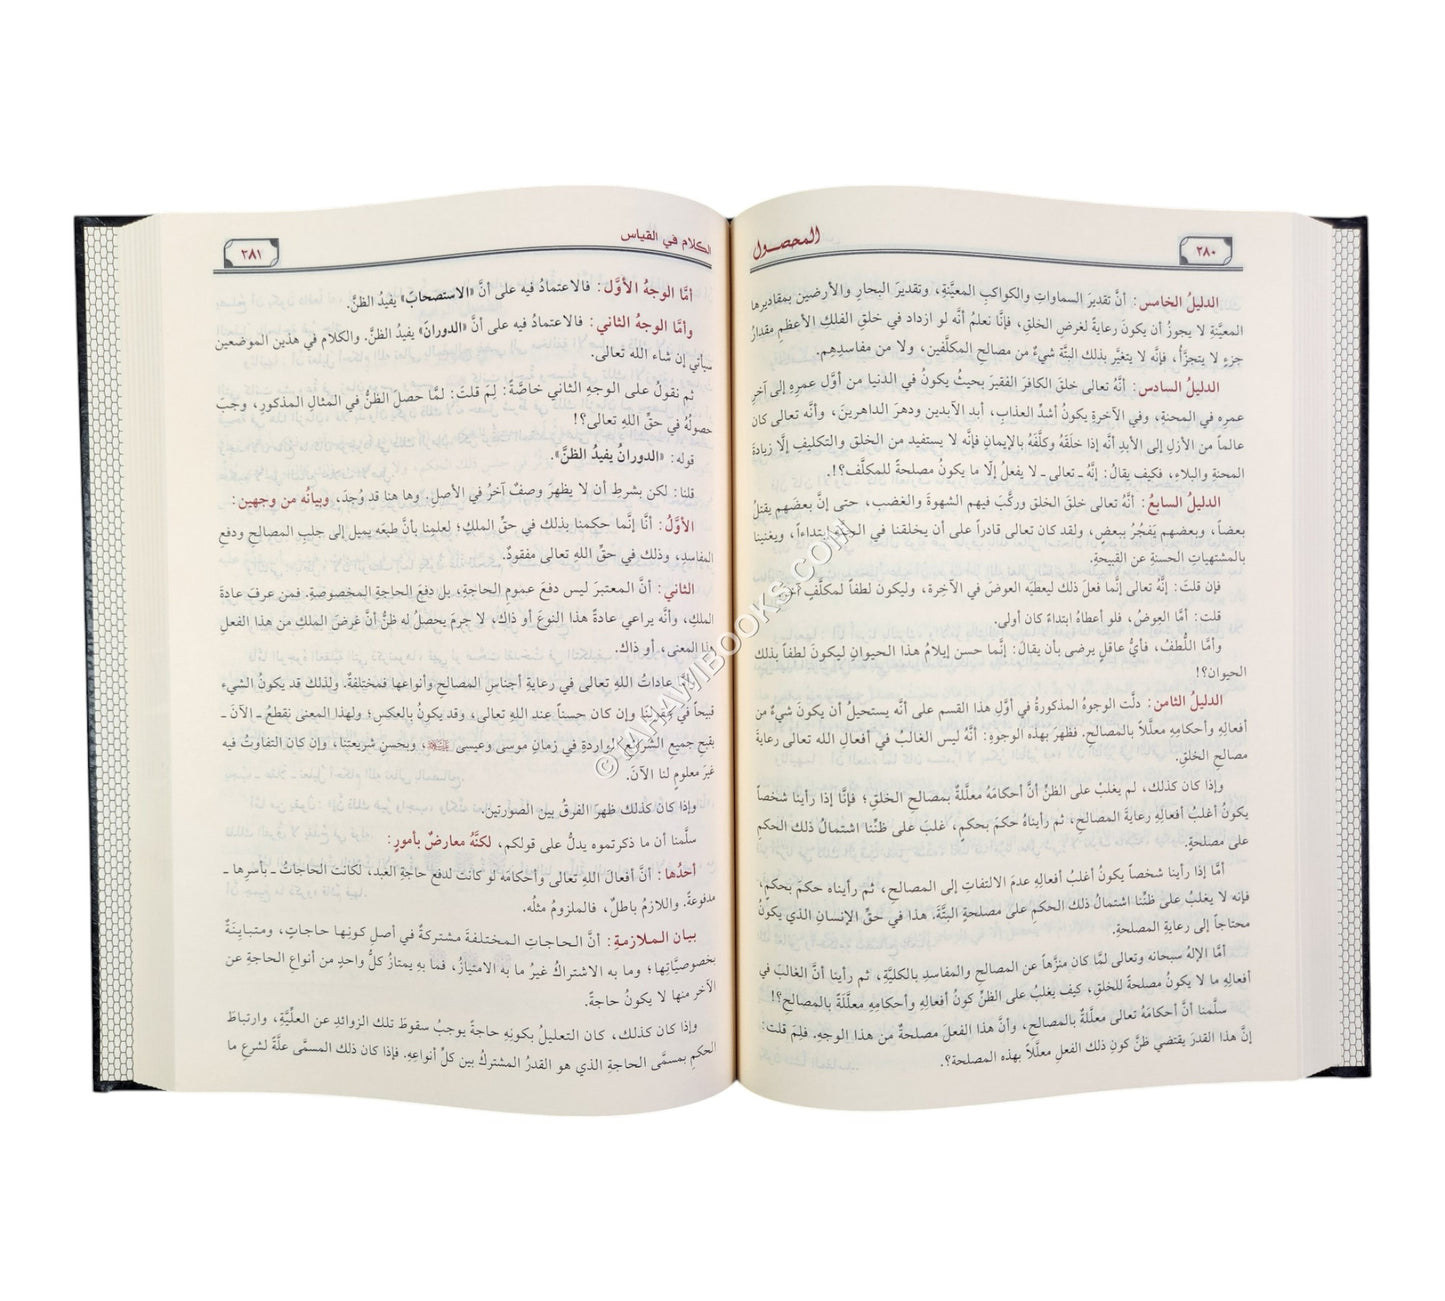 المحصول
٣٨٠
الدليلُ الخامس: أنَّ تقديرَ السماواتِ والكواكبِ المعيَّنةِ، وتقديرَ البحارِ والأرضين بمقاديرها
المعيَّنةِ لا يجوزُ أن يكونَ رعايةً لغرضِ الخلقِ، فإنَّا نعلمُ أنه لو ازداد في خلقِ الفلكِ الأعظمِ مقدارُ
جزءٍ لا يتجزَّأ، فإنَّه لا يتغيَّر بذلك البتَّة شيءٌ من مصالحِ المكلَّفين، ولا من مفاسدِهِم.
الدليلُ السادس: أنَّهُ تعالى خلقَ الكافرَ الفقيرَ بحيثُ يكونُ في الدنيا من أوَّلِ عمرِهِ إلى آخرِ
عمره في المحنةِ، وفي الآخرةِ يكونُ أشدِّ العذابِ، أبد الآبدين ودهرَ الداهرينَ، وأنَّه تعالى كان
عالماً من الأزلِ إلى الأبدِ أنَّه إذا خلَقَهُ وكلَّفَهُ بالإيمانِ فإنَّه لا يستفيد من الخلق والتكليفِ إلَّا زيادةَ
المحنةِ والبلاءِ، فكيف يقالُ: إنَّهُ ـ تعالى ـ لا يفعلُ إلَّا ما يكونُ مصلحةً للمكلَّف؟!.
الدليلُ السابعُ: أنَّهُ تعالى خلقَ الخلق وركَّبَ فيهم الشهوةَ والغضب، حتى إنَّ بعضَهم يقتلُ
بعضاً، وبعضهم يَفجُرُ ببعضٍ، ولقد كان تعالى قادراً على أن يخلقنا في الجنة ابتداءاً، ويغنينا
بالمشتهياتِ الحسنةِ عن القبيحةِ.
فإن قلتَ: إنَّهُ تعالى إنَّما فعلَ ذلك ليعطيَه العوضَ في الآخرة، وليكون لطفاً لمكلَّفٍ آخر.
قلت: أمَّا العِوضُ، فلو أعطاهُ ابتداءً كان أولى.
وأمَّا اللُّطفُ، فأيُّ عاقلٍ يرضى بأن يقالَ: إنَّما حسن إيلامُ هذا الحيوانِ ليكونَ لطفاً بذلك
الحيوان؟!
الدليلُ الثامن: دلَّت الوجوهُ المذكورةُ في أوَّلِ هذا القسم على أنَّه يستحيلُ أن يكونَ شيءٌ من
أفعالِهِ وأحكامِهِ معلَّلاً بالمصالحِ. فظهرَ بهذه الوجوهِ: أنَّهُ ليس الغالبَ في أفعالِ الله تعالى رعايةُ
مصالحِ الخلقِ.
وإذا كان كذلك، لم يغلبْ على الظنِّ أنَّ أحكامَهُ معلَّلةٌ بمصالحِ الخلقِ؛ فإنَّا إذا رأينا شخصاً
يكونُ أغلبُ أفعالِهِ رعايةَ المصالحِ، ثم رأيناهُ حكمَ بحكمٍ، غلبَ على ظنِّنا اشتمالُ ذلك الحكمِ
على مصلحةٍ.
أمَّا إذا رأينا شخصاً يكونُ أغلبُ أفعالِهِ عدمَ الالتفات إلى المصالحِ، ثم رأيناه حكمَ بحكمٍ،
فإنه لا يغلبُ على ظنِّنا اشتمالُ ذلك الحكم على مصلحةٍ البتَّةَ. هذا في حقِّ الإنسانِ الذي يكونُ
محتاجاً إلى رعايةِ المصلحةِ.
أمَّا الإلهُ سبحانه وتعالى لمَّا كان منزَّهاً عن المصالحِ والمفاسدِ بالكليَّةِ، ثم رأينا أنَّ الغالبَ في
أفعالِهِ ما لا يكونُ مصلحةً للخلقِ، كيف يغلبُ على الظنِّ كونُ أفعالِهِ وأحكامِهِ معلَّلةً بالمصالحِ؟!
سلَّمنا أنَّ أحكامَهُ تعالى معلَّلةٌ بالمصالحِ، وأنَّ هذا الفعلَ مصلحةٌ من هذا الوجهِ. فلِمَ قلت:
إنَّ هذا القدرَ يقتضي ظنَّ كونِ ذلك الفعلِ معلَّلاً بهذه المصلحة؟.
الكلام في القياس
٣٨١
أمَّا الوجهُ الأوَّل: فالاعتمادُ فيه على أنَّ «الاستصحابَ» يفيدُ الظنَّ.
وأمَّا الوجهُ الثاني: فالاعتمادُ فيه على أنَّ «الدورانَ» يفيدُ الظنَّ. والكلام في هذين الموضعين
سيأتي إن شاء الله تعالى.
ثم نقولُ على الوجهِ الثاني خاصَّةً: لِمَ قلتَ: لمَّا حصلَ الظنُّ في المثالِ المذكورِ، وجبَ
حصولُهُ في حقِّ اللهِ تعالى؟!
قوله: «الدورانُ يفيدُ الظنَّ».
قلنا: لكن بشرطِ أن لا يظهرَ وصفٌ آخرُ في الأصلِ. وها هنا قد وُجدَ، وبيانُه من وجهين:
الأوَّلُ: أنَّا إنَّما حكمنا بذلك في حقِّ الملكِ؛ لعلمنا بأنَّ طبعَه يميل إلى جلبِ المصالحِ ودفعِ
المفاسدِ، وذلك في حقِّ اللهِ تعالى مفقودٌ.
الثاني: أنَّ المعتبرَ ليس دفعَ عمومِ الحاجةِ، بل دفعَ الحاجةِ المخصوصةِ. فمن عرفَ عادةَ
الملكِ، وأنَّه يراعي عادةً هذا النوعَ أو ذاك، لا جرمَ يحصلُ له ظنُّ أنَّ غرضَ الملكِ من هذا الفعلِ
هذا المعنى، أو ذاك.
أمَّا عاداتُ اللهِ تعالى في رعايةِ أجناسِ المصالحِ وأنواعها فمختلفةٌ. ولذلك قد يكونُ الشيء
قبيحاً في عقولنا وإن كان حسناً عند اللهِ تعالى، وقد يكونُ بالعكسِ؛ ولهذا المعنى نقطعُ ـ الآنَ ـ
بقبحِ جميعِ الشرائعِ الواردةِ في زمانِ موسى وعيسى، وبحسنِ شريعتِنا، وإن كان التفاوتُ فيه
غيرَ معلومٍ لنا الآنَ.
وإذا كان كذلك ظهرَ الفرقُ بين الصورتين.
سلَّمنا أن ما ذكرتموه يدلُّ على قولكم، لكنَّهُ معارضٌ بأمورٍ:
أحدُها: أنَّ أفعالَ اللهِ تعالى وأحكامَه لو كانت لدفعِ حاجةِ العبد، لكانت الحاجاتُ ـ بأسرِها ـ
مدفوعةً. واللازمُ باطلٌ، فالملزومُ مثلُه.
بيان الملازمةِ: أنَّ الحاجاتِ المختلفةَ مشتركةٌ في أصلِ كونِها حاجاتٍ، ومتباينةٌ
بخصوصيَّاتِها؛ وما به الاشتراكُ غيرُ ما به الامتيازُ، فما بِهِ يمتازُ كلُّ واحدٍ من أنواعِ الحاجةِ عن
الآخر منها لا يكونُ حاجةً.
وإذا كان كذلك، كان التعليلُ بكونِهِ حاجةً يوجبُ سقوطَ تلك الزوائدِ عن العلِّيَّةِ، وارتباطَ
الحكمِ بمسمَّى الحاجةِ الذي هو القدرُ المشتركُ بين كلِّ أنواعِهِ. فإذا كان ذلك المسمَّى علَّةً لشرعِ ما
© TAHAWIBOOKS.COM